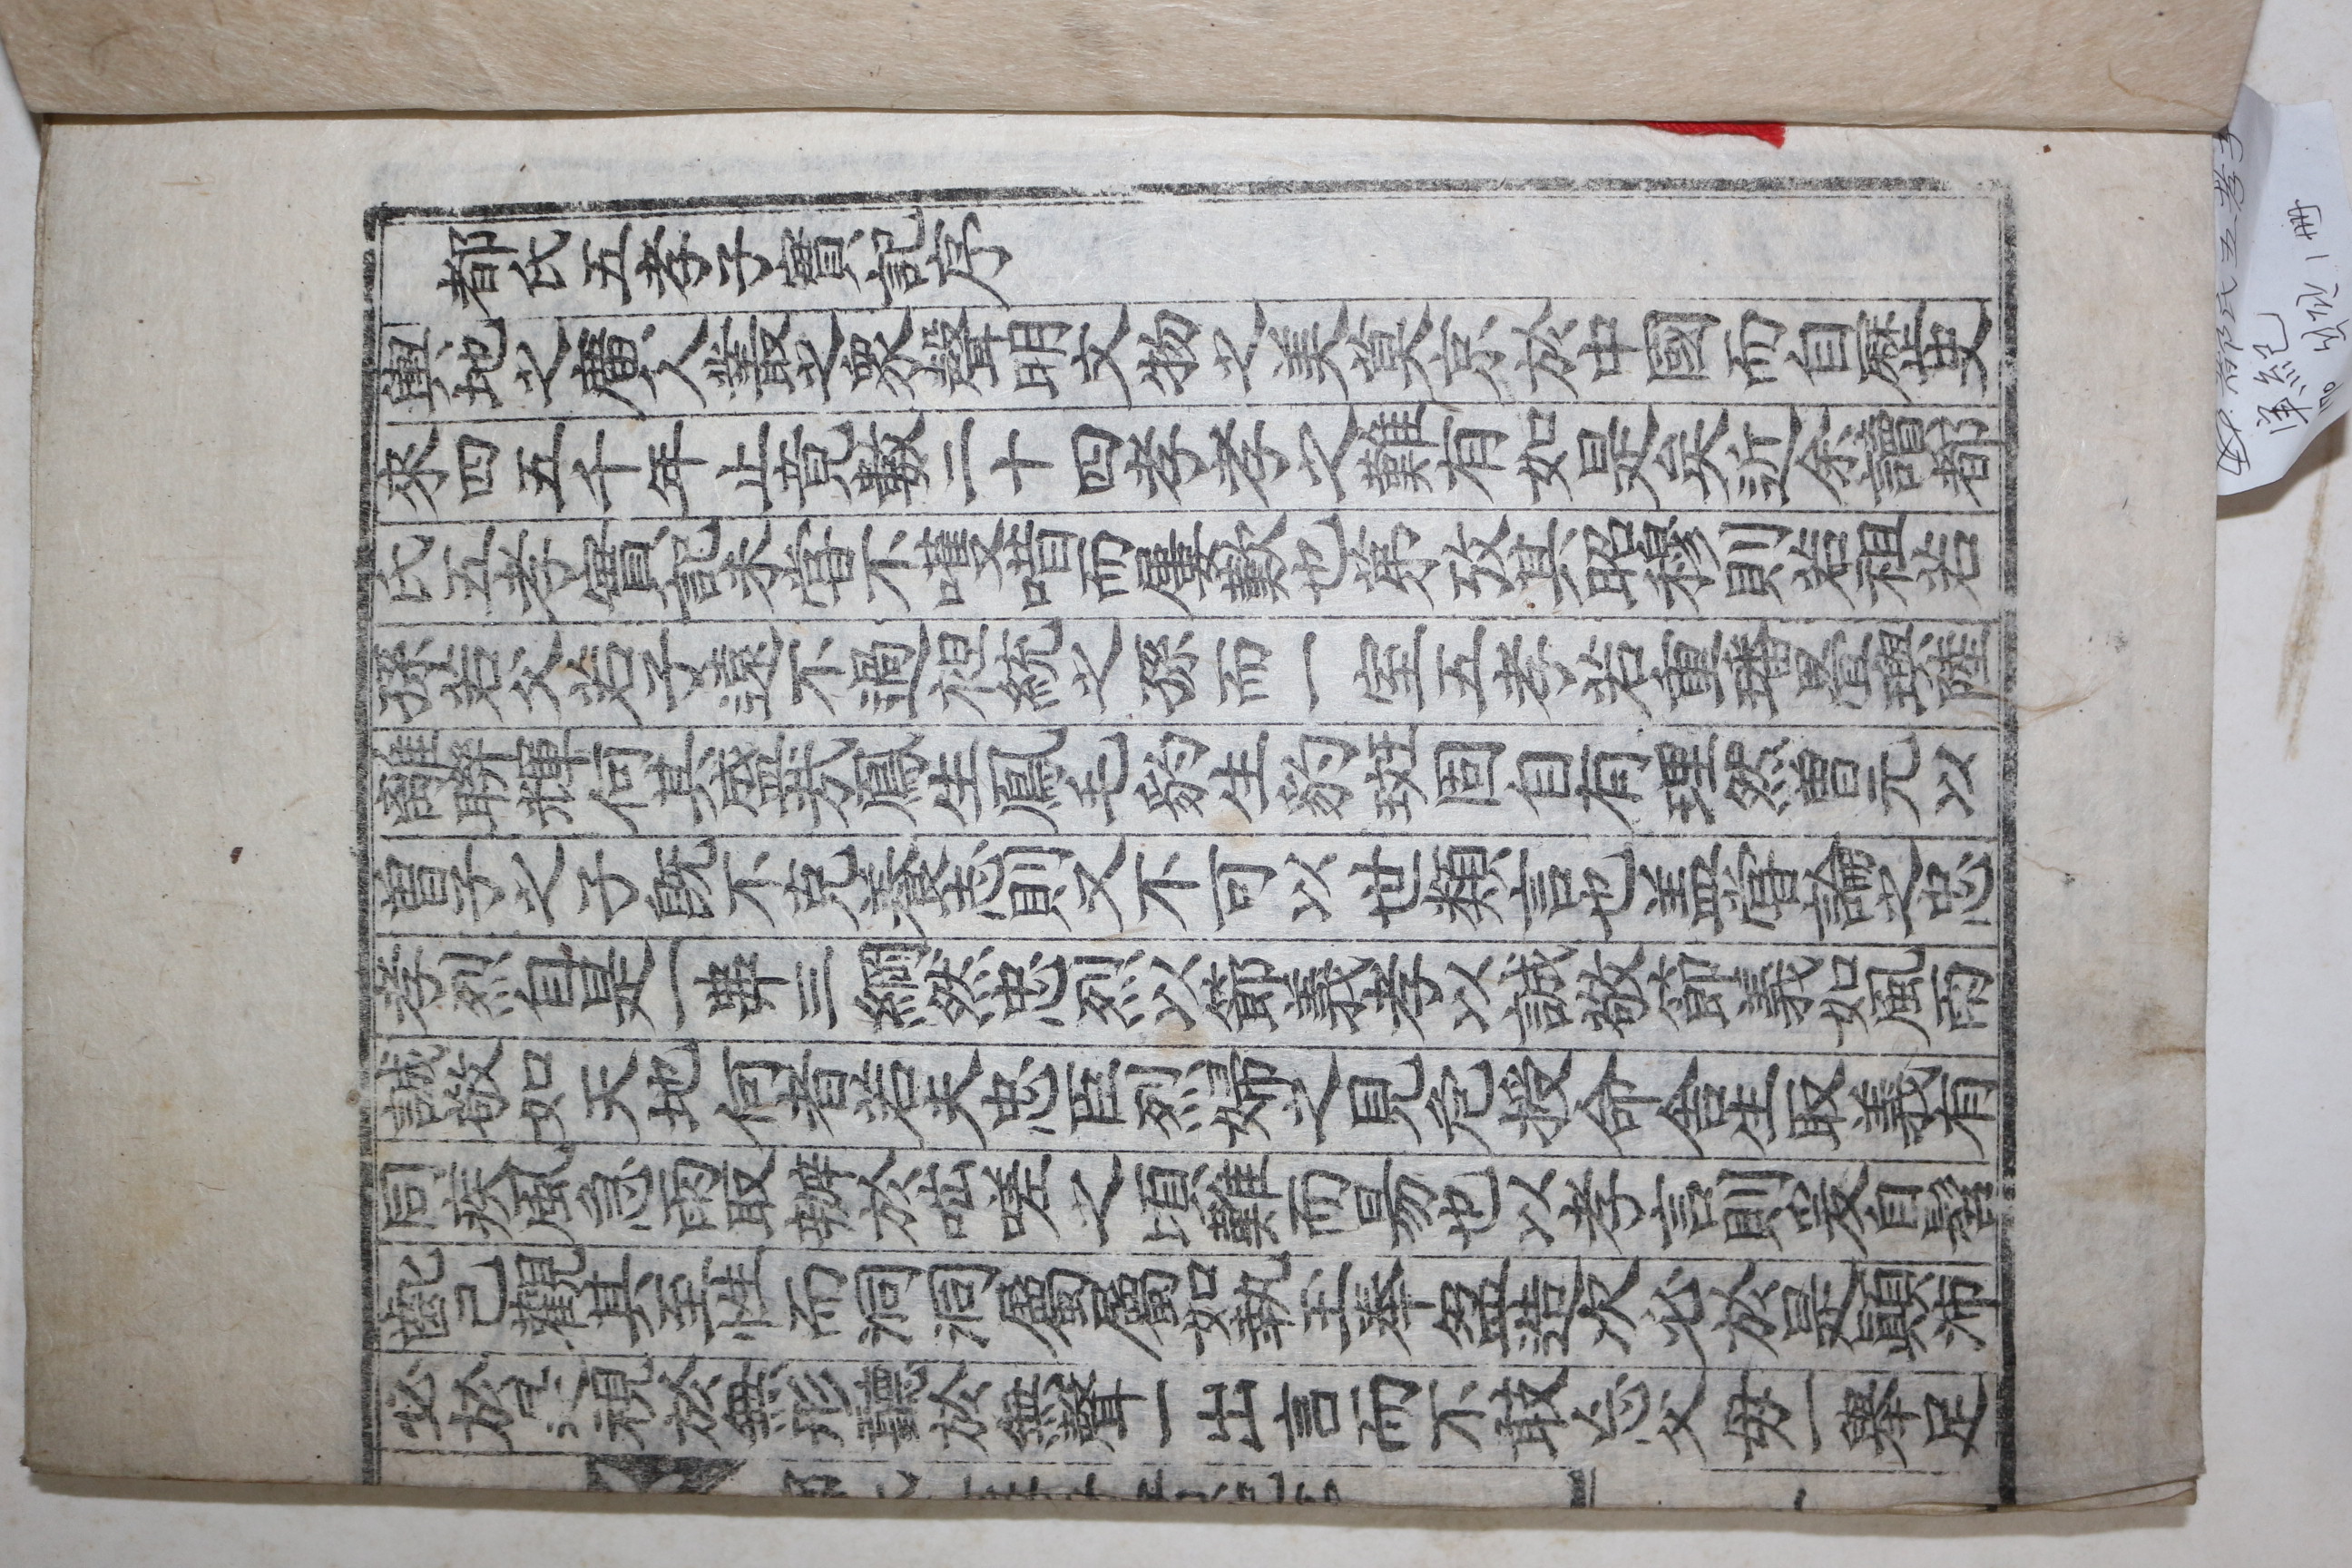 都氏五孝子實記序
輿地之廣人叢之衆聲明文物之美莫京於中國而自歷史
來四五千年止竟數二十四孝孝之難有如是矣近余讀都
氏五孝實記未嘗不嚄唶而屢歎也第攷其昭穆則若祖若
孫若父若子遠不過袒統之孫而一室五孝若重璠疊璵陸
離聯輝何其盛哉鳳生鳳毛豹生豹斑固自有理然曾元以
曾子之子旣不克養志則又不可以世類言也盖嘗論之忠
孝烈自是一弗三綱然忠烈以節義孝以誠敬節義如風雨
誠敬如天地何者若夫忠臣烈婦之見危授命舍生取義有
同疾風急雨取辦於咄嗟之頃難而易也以孝言則爰自髫
齔已觀其至性而洞洞屬屬如執玉奉盈造次必於是顚沛
必於是視於無形聽於無聲一出言而不敢忘父母一擧足
都氏五孝子
実紀
목판 1冊